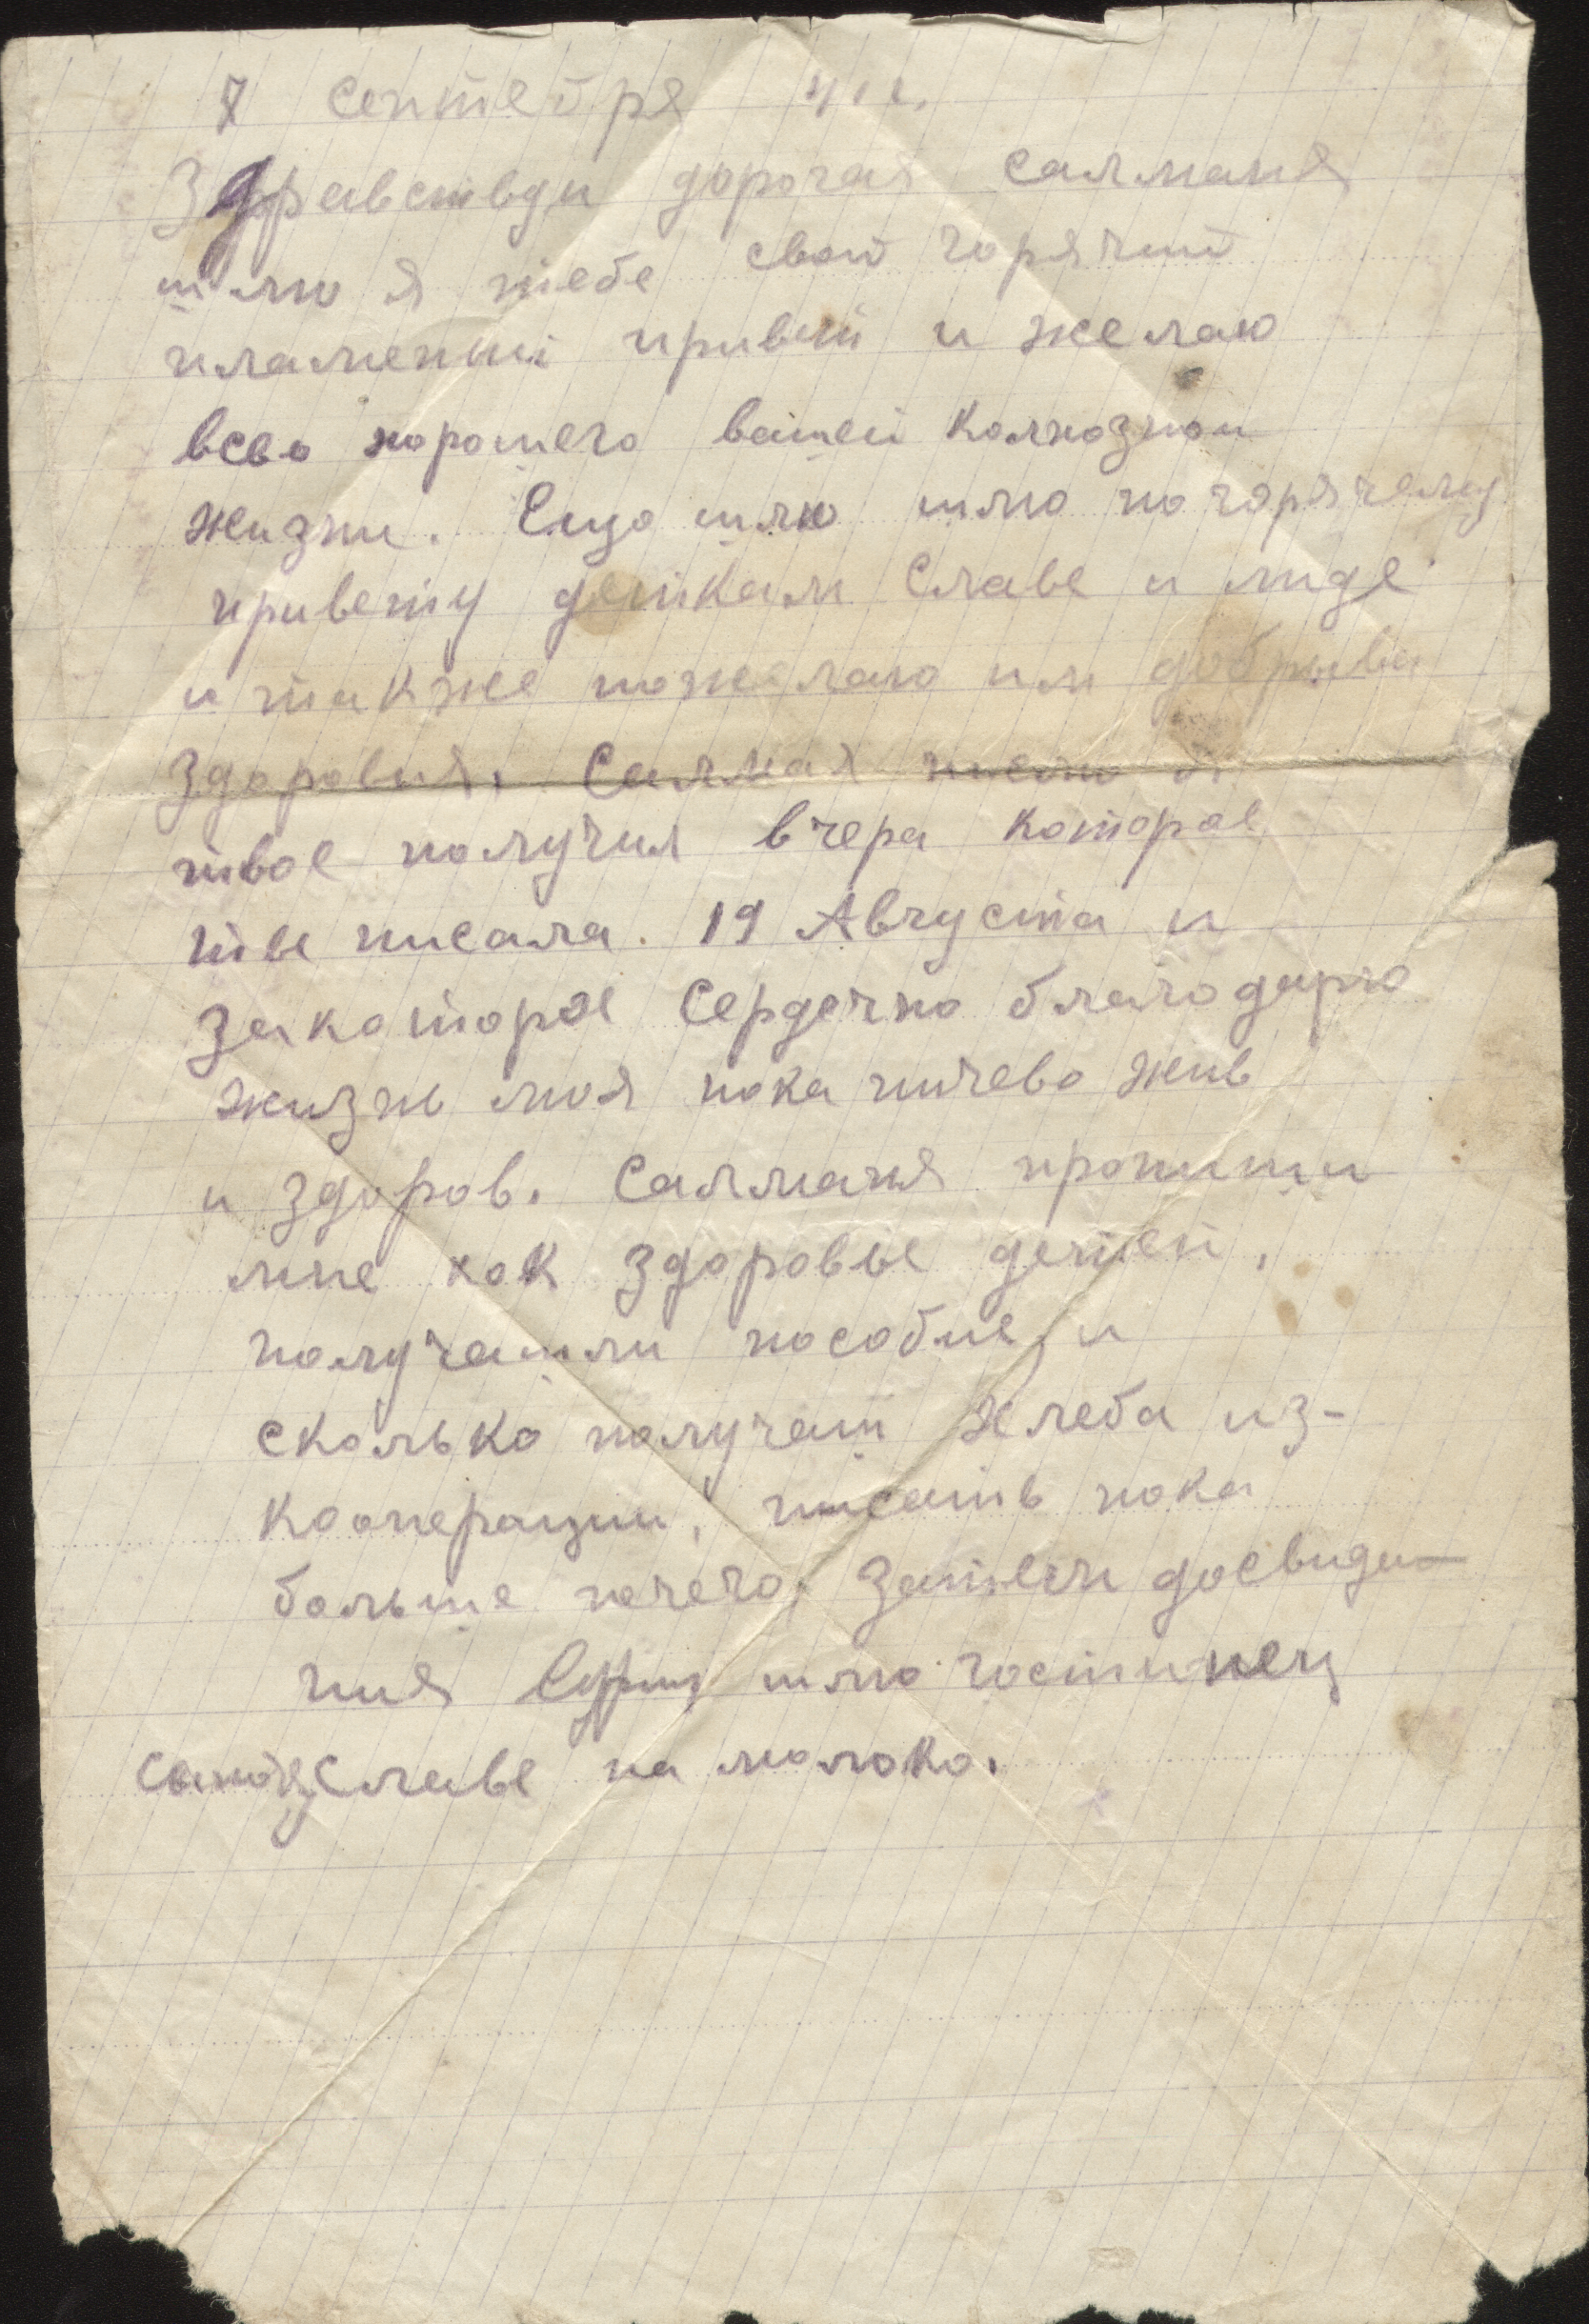 7 сентебря 41 г.
Здравствуи дорогая салманя
шлю я тебе свой горячий
пламенни привет и желаю
всево хорошего вашей колхознои
жизни. Ещо шлю шлю по горячему
привету деткам Славе и лиде
и также пожелаю им добрыва
здоровия. Салмая писмо я
твое получил вчера которое
тве писала. 19 Августа и
закоторое Сердечно благодарю
жизнь моя пока ничево жив
и здоров. Салманя пропиши
мне как здоровье детей,
получашли пособие и
сколько получаш хлеба из-
кооперации, писать пока
больше нечего. Затем досвида-
ния шлю гостинец
Славе на молоко.